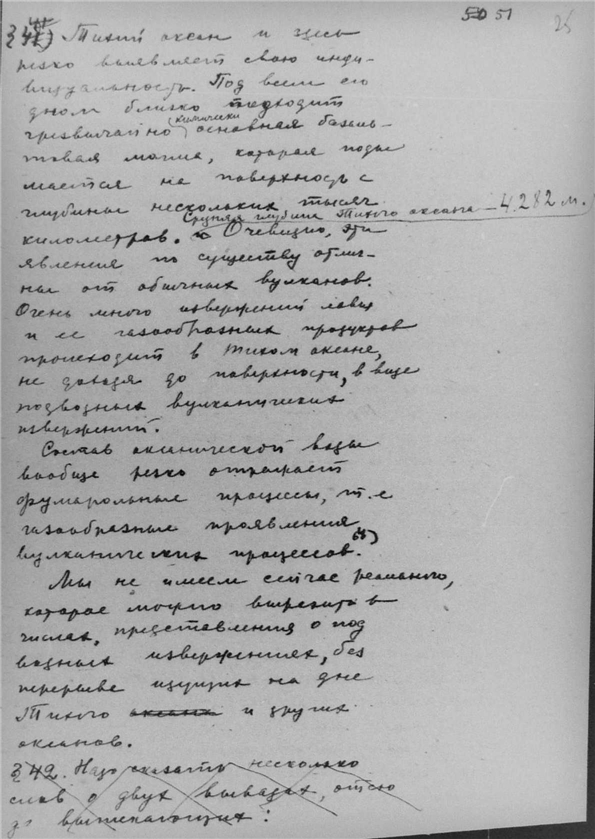 50 51
25
§ 41) Тихий океан и здесь
резко выявляет свою инди-
видуальность. Под всем его
дном близко подходит
чрезвычайно химически основная базаль-
товая магма, которая поды
мается на поверхность с
глубины нескольких тысяч
Средняя глубина Тихого океана – 4.282 м.
километров. Очевидно, эти
явления по существу отлич-
ны от обычных вулканов.
Очень много извержений лавы
и ее газообразных продуктов
происходит в Тихом океане,
не доходя до поверхности, в виде
подводных вулканических
извержений.
Состав океанической воды
вообще резко отражает
фумарольные процессы, т.е
газообразные проявления
вулканических процессов.
Мы не имеем сейчас реального,
которое можно выразить в
числах, представления о под
водных извержениях, без
перерыва идущих на дне
Тихого океана и других
океанов.
§ 42. Надо сказать несколько
слов о двух выводах, отсю
да вытекающих: